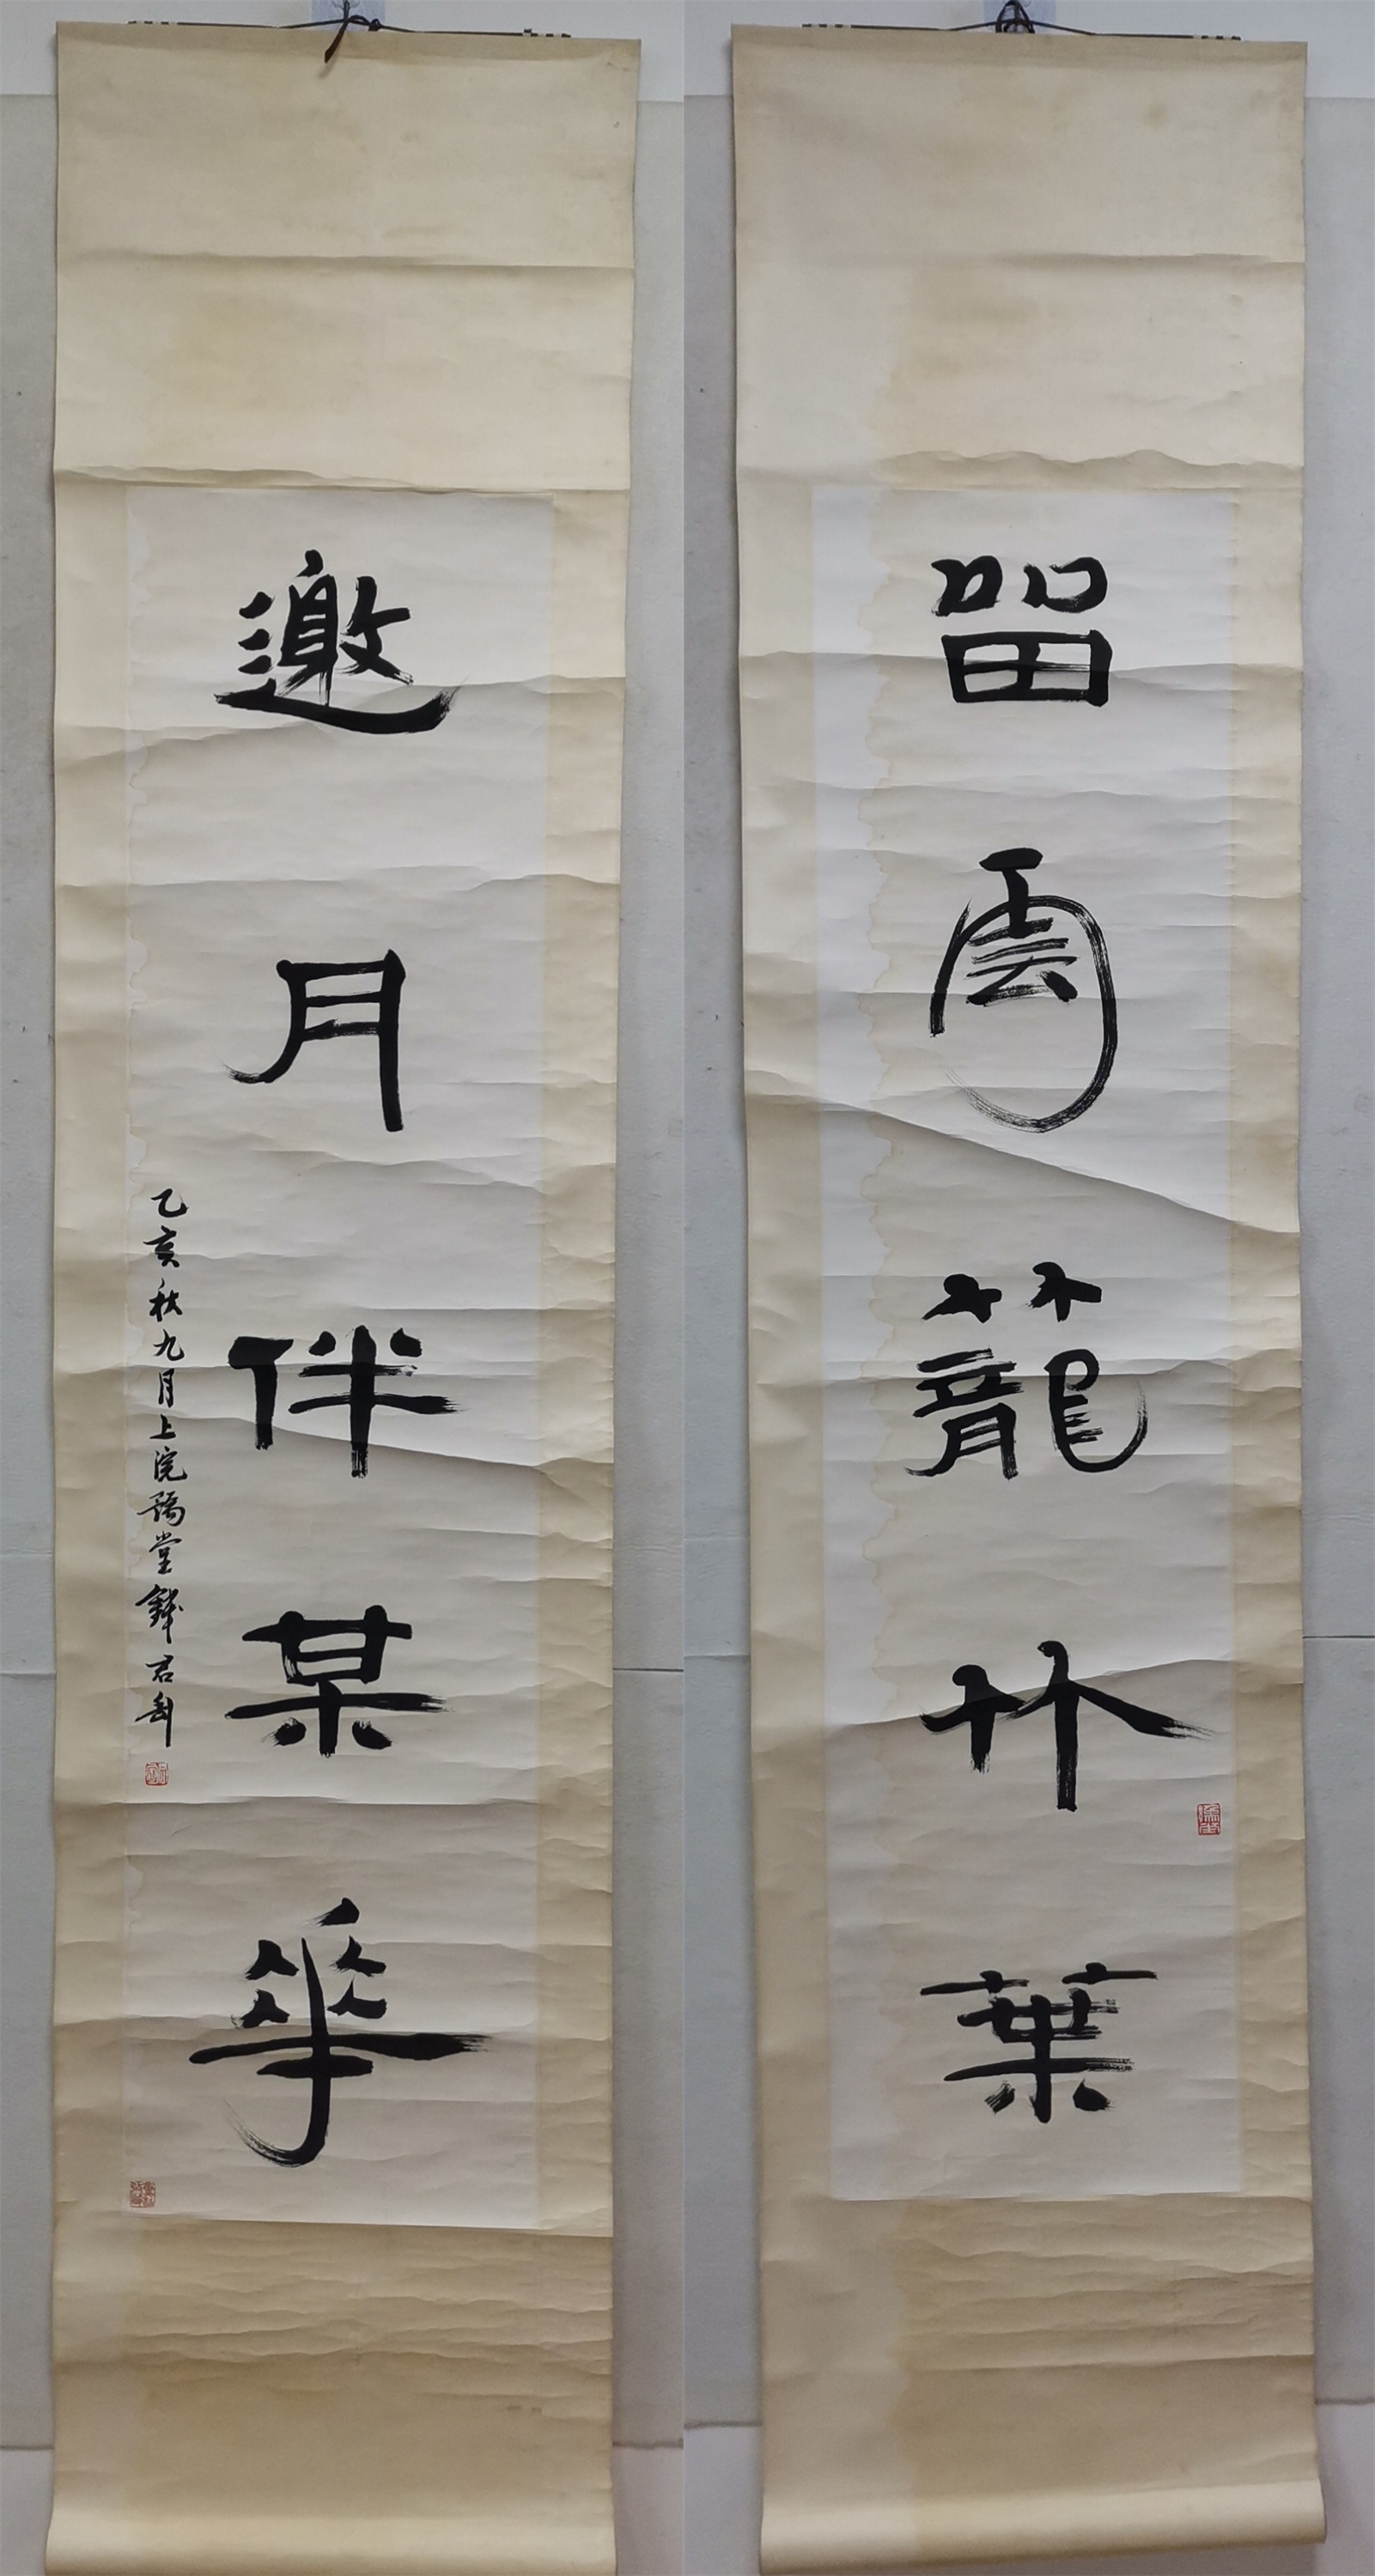 留雲籠竹葉
邀月伴某華
乙亥秋九月上浣豫堂錢君匋